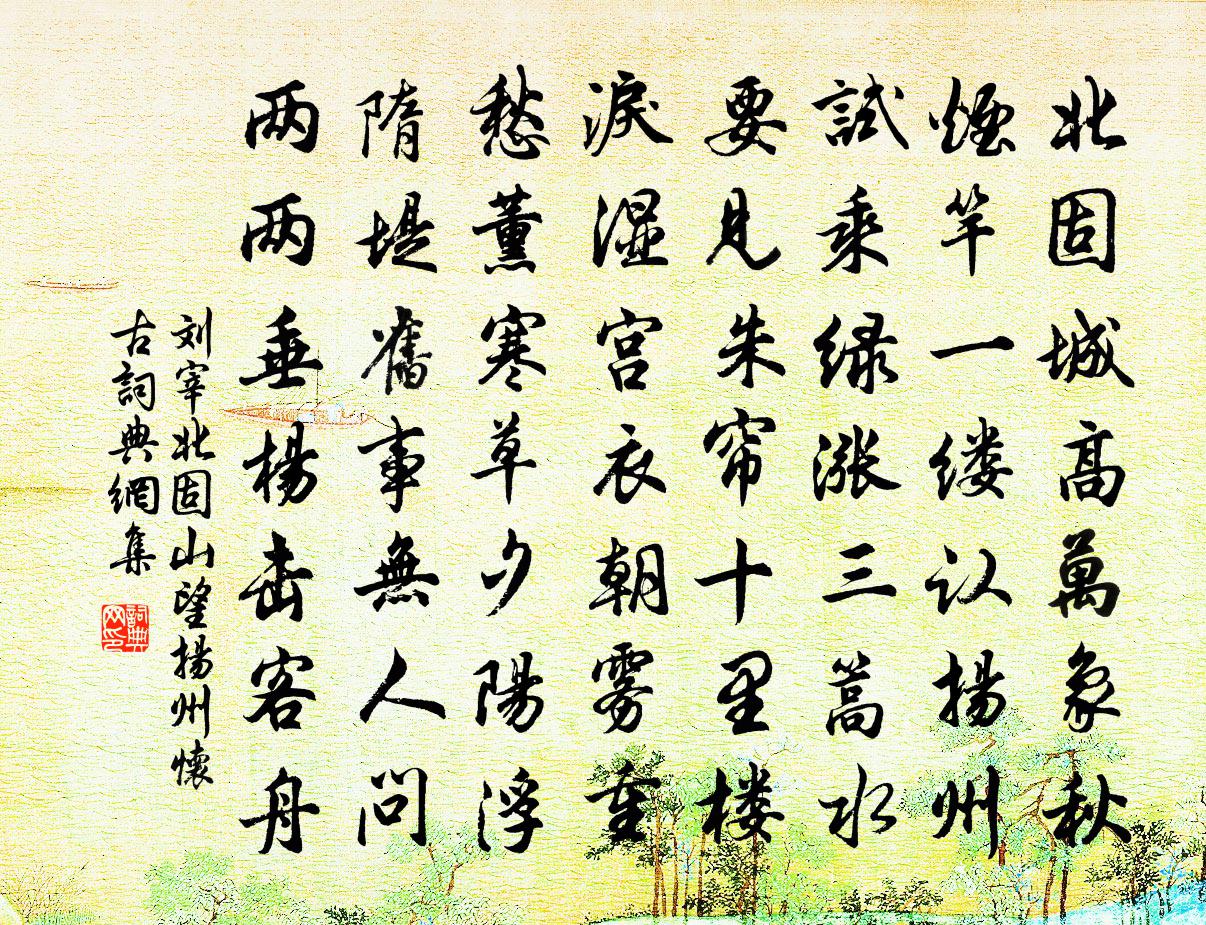 北固城高萬象秋
煙竿一缕认揚州
試乘绿漲三篙水
要見朱帘十里楼
淚湿宫衣朝雾重
愁薰寒草夕陽浮
隋堤舊事無人問
两两垂楊击客舟
刘宰北固山望揚州懷
古詞典網集
詞典
网印